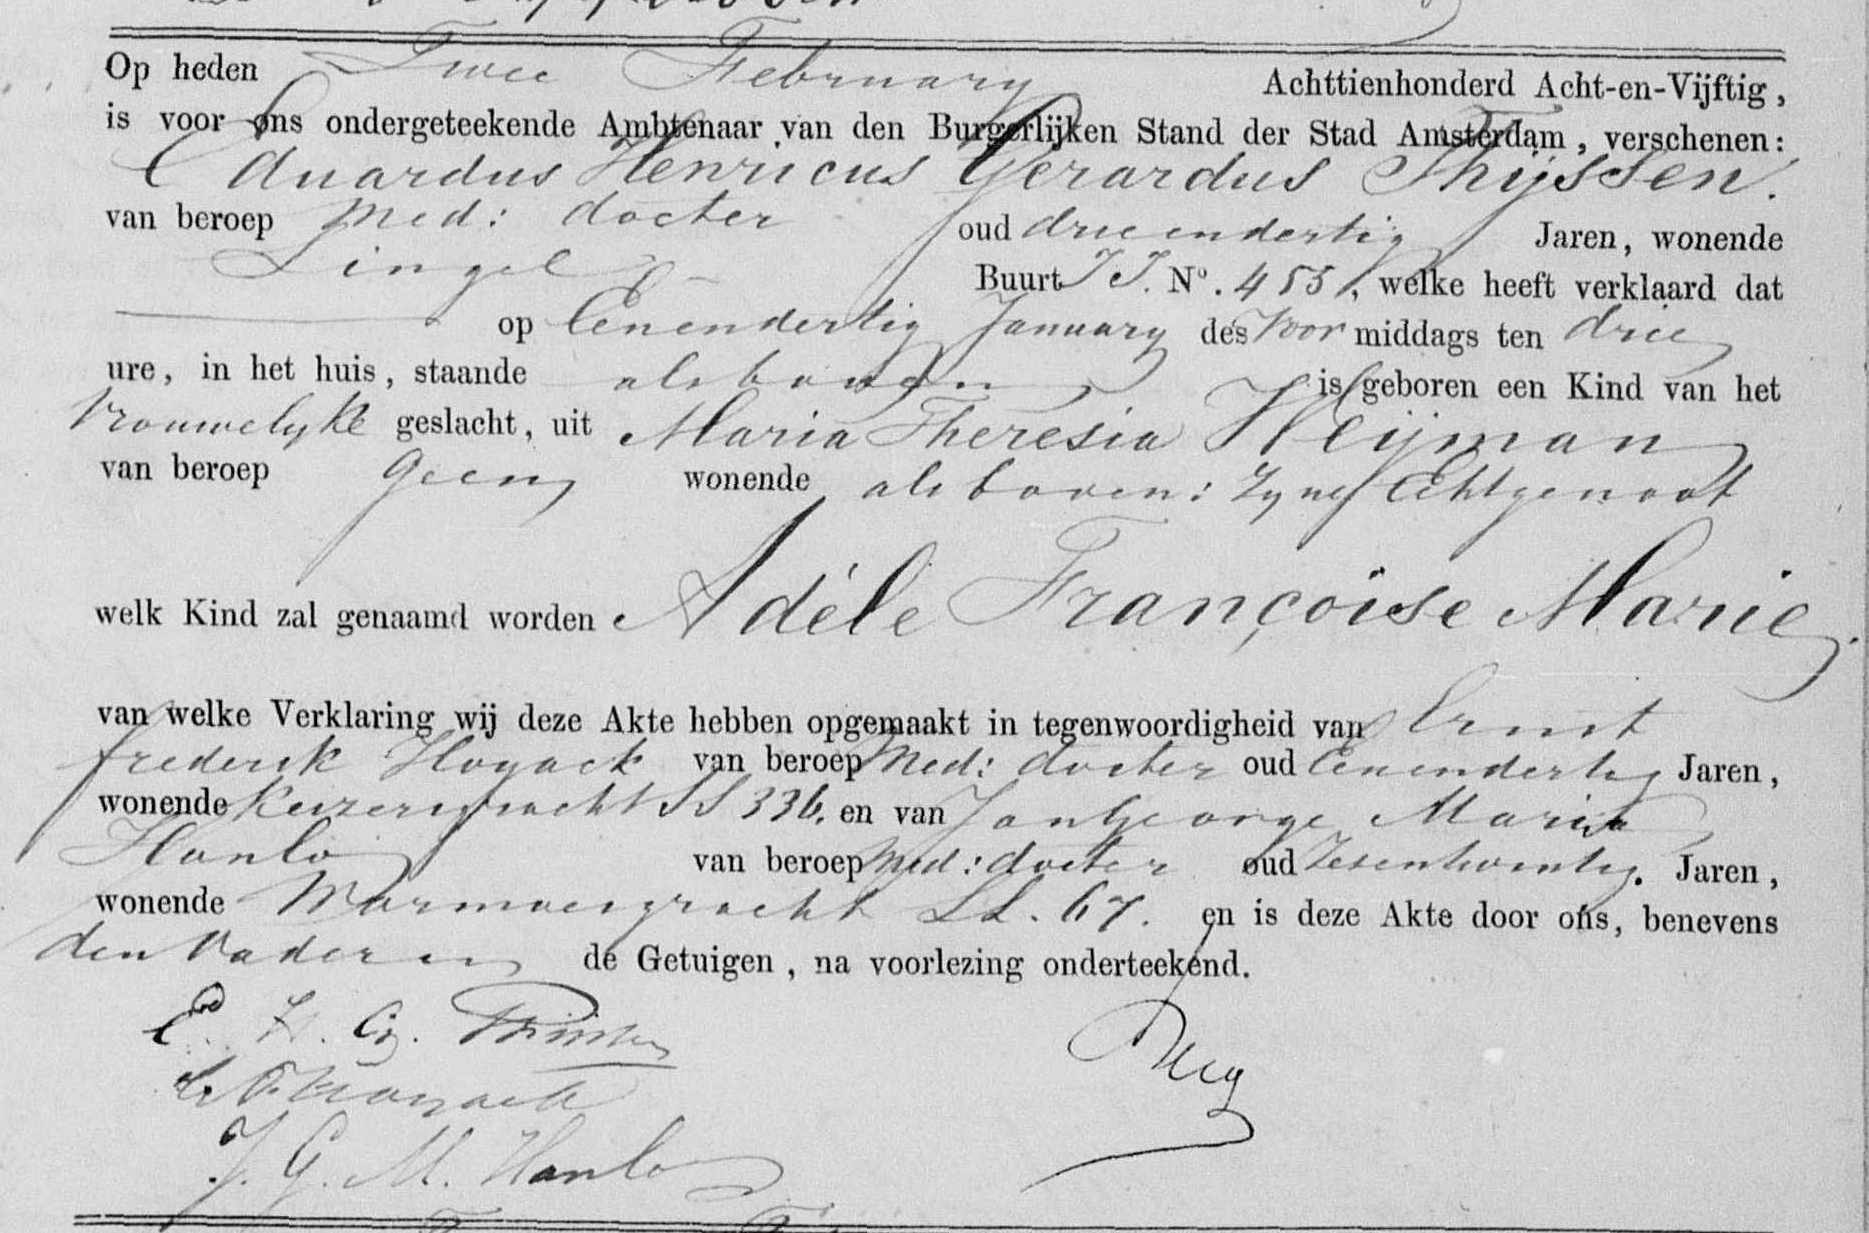 Op heden Twee February Achttienhonderd Acht-en-Vijftig,
is voor ons ondergeteekende Ambtenaar van den Burgerlijken Stand der Stad Amsterdam, verschenen:
Eduardus Henricus Gerardus Thijssen.
van beroep Med: docter oud drie en dertig Jaren, wonende
Singel Buurt JJ. No. 453, welke heeft verklaard dat
op Eenendertig January des Voor middags ten drie
ure, in het huis, staande als boven is geboren een Kind van het
Vrouwelyke geslacht, uit Maria Theresia Heijman
van beroep geen wonende als boven: Zyne Echtgenoot
welk Kind zal genaamd worden Adèle Françoise Marie.
van welke Verklaring wij deze Akte hebben opgemaakt in tegenwoordigheid van Ernst
frederik Hoyack van beroep Med: docter oud Eenendertig Jaren,
wonende Keizersgracht SS 336. en van Jan George Maria
Hanlo van beroep Med: docter oud Zesentwintig. Jaren,
wonende Warmoesgracht LL. 67. en is deze Akte door ons, benevens
den Vader en de Getuigen, na voorlezing onderteekend.
Ed. H. G. Thijssen
E F Hoyack
J. G. M. Hanlo